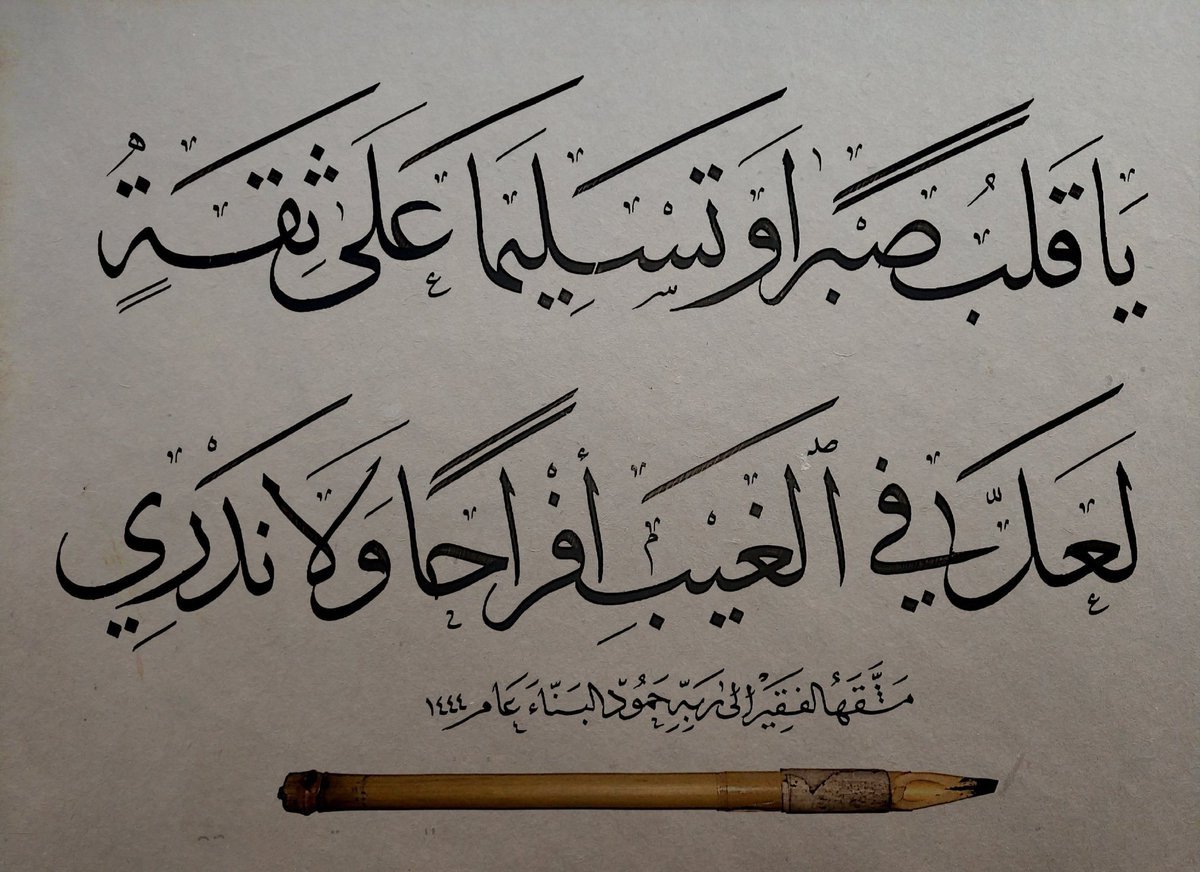 يَا قَلْبُ صَبْرًا وَتَسْلِيمًا عَلَىٰ ثِقَةٍ
لَعَلَّ في ٱلْغَيْبِ أَفْرَاحًا وَلَا نَدْرِي
مَشَّقَهُ الفَقِيرُ إلى رَبِّهِ حَمُّود البَنَّاءَ عَام ١٤٤٤